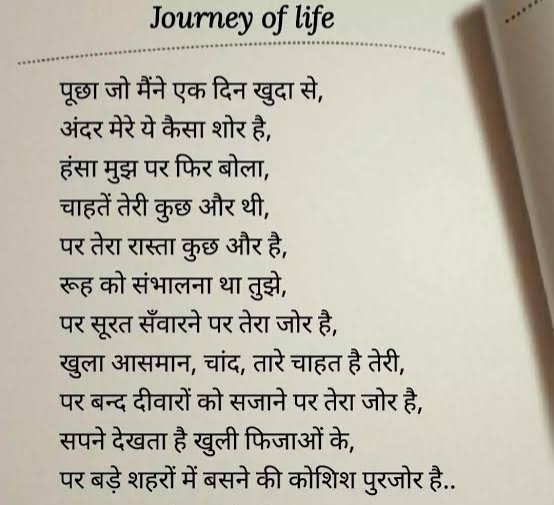 Journey of life
पूछा जो मैंने एक दिन खुदा से,
अंदर मेरे ये कैसा शोर है,
हंसा मुझ पर फिर बोला,
चाहतें तेरी कुछ और थी,
पर तेरा रास्ता कुछ और है,
रूह को संभालना था तुझे,
पर सूरत सँवारने पर तेरा जोर है,
खुला आसमान, चांद, तारे चाहत है तेरी,
पर बन्द दीवारों को सजाने पर तेरा जोर है,
सपने देखता है खुली फिजाओं के,
पर बड़े शहरों में बसने की कोशिश पुरजोर है..